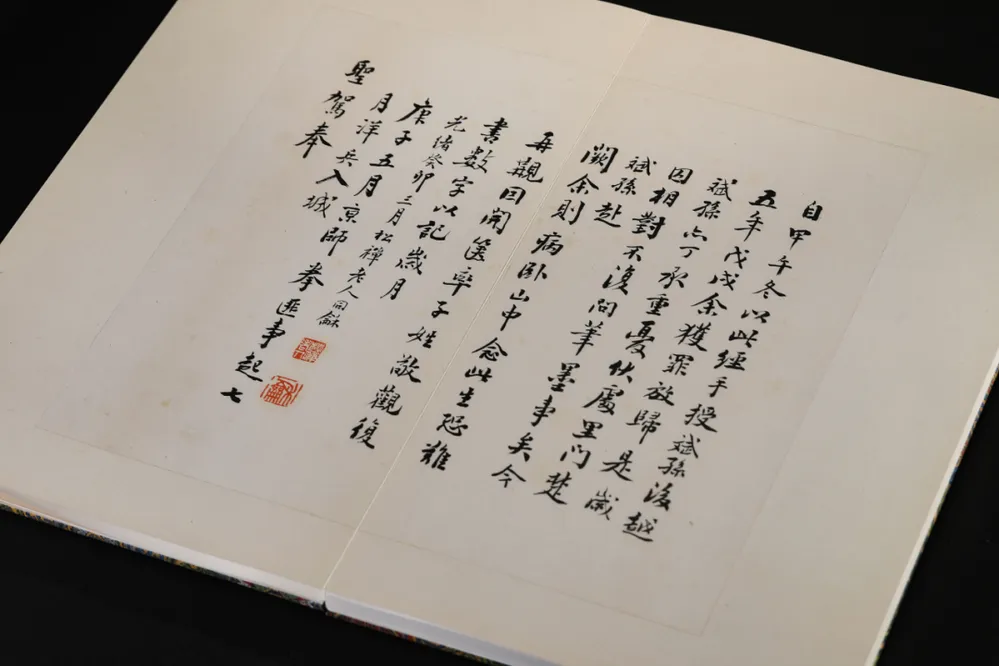 自甲午冬以此經手授斌孫後越
五年戊戌余獲罪放歸是歲
斌孫亦丁承重憂伏處里門楚
因相對不復問筆墨事矣今
斌孫赴
闕余則病臥山中念此生恐難
再因開篋率子姓敬觀復
書數字以記歲月
光緒癸卯三月松禪老人同龢
庚子五月京師拳匪事起七
月洋兵入城
聖駕奉